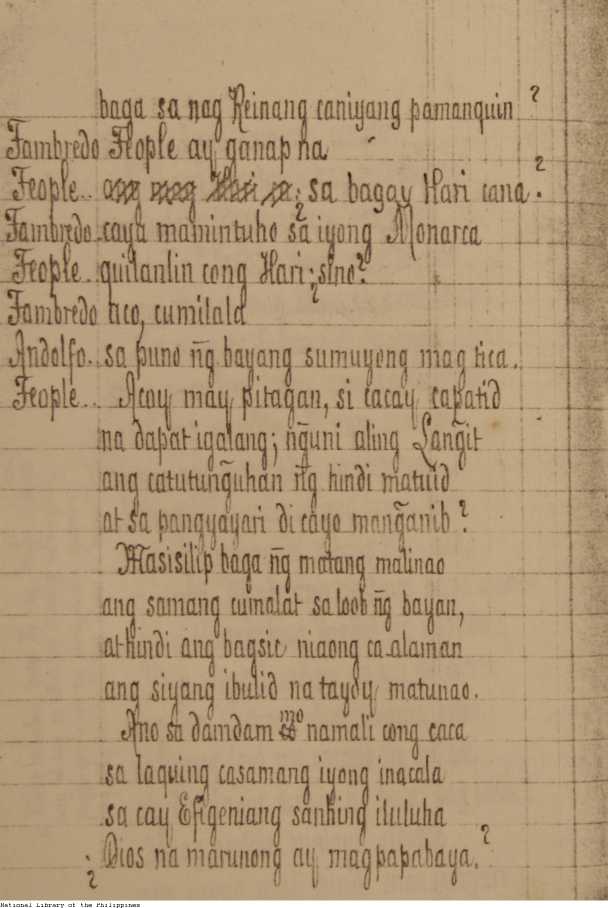 baga sa nag Reinang caniyang pamanquin ?
Fambredo Feople ay ganap na
Feople.. sa bagay Hari cana ?
Fambredo. caya mamintuho sa iyong Monarca
Feople.. quilanlin cong Hari; sino?
Fambredo tico, cumilala
Andolfo.. sa puno ñg bayang sumuyong mag tica.
Feople.. Acoy may pitagan, si cacay capatid
na dapat igalang; ñguni aling Langit
ang catutung̃uhan ñg hindi matuid
at sa pangyayari di cayo mang̃anib ?
Masisilip baga ñg matang malinao
ang samang cumalat sa loob ñg bayan,
at hindi ang bagsic niaong ca-alaman
ang siyang ibulid na tayoy matunao.
Ano sa damdam mo namali cong caca
sa laquing casamang iyong inacala
sa cay Efigeniang sanhing iluluha
¿Dios na marunong ay magpapabaya. ?
National Library of the Philippines